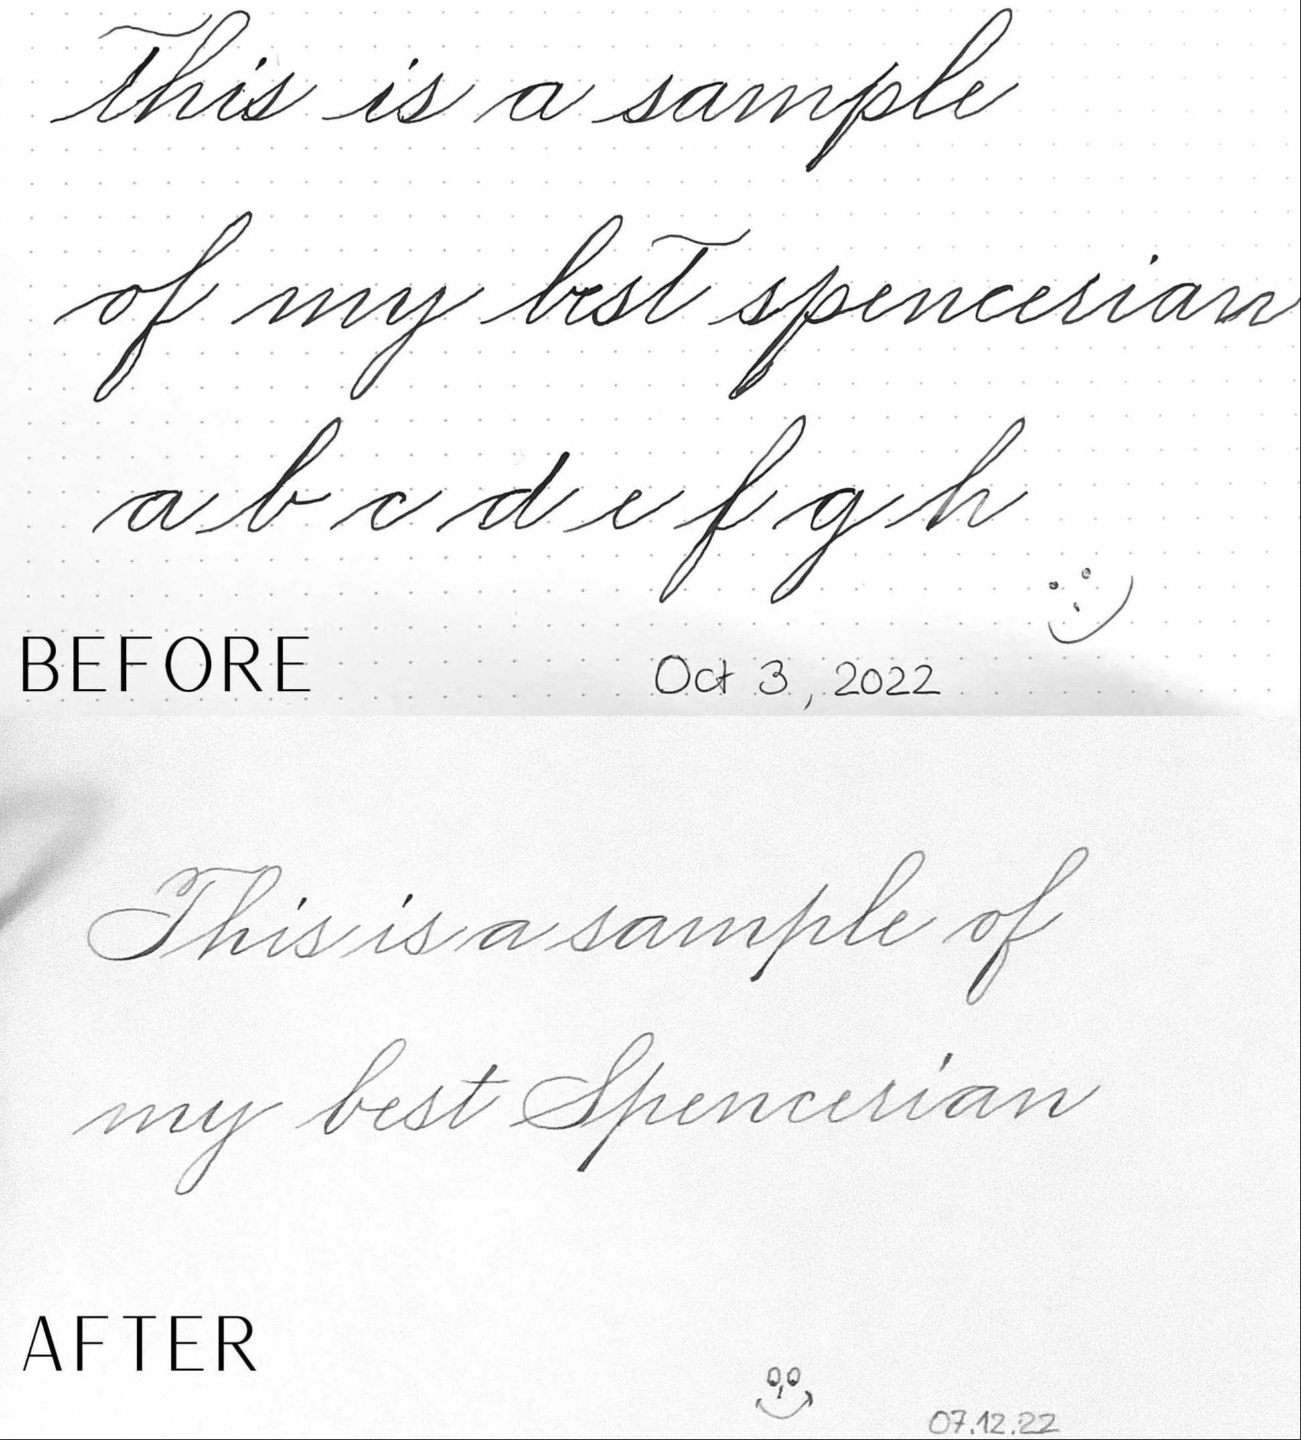 This is a sample
of my best spencerian
a b c d e f g h
BEFORE
Oct 3, 2022
This is a sample of
my best Spencerian
AFTER
07.12.22